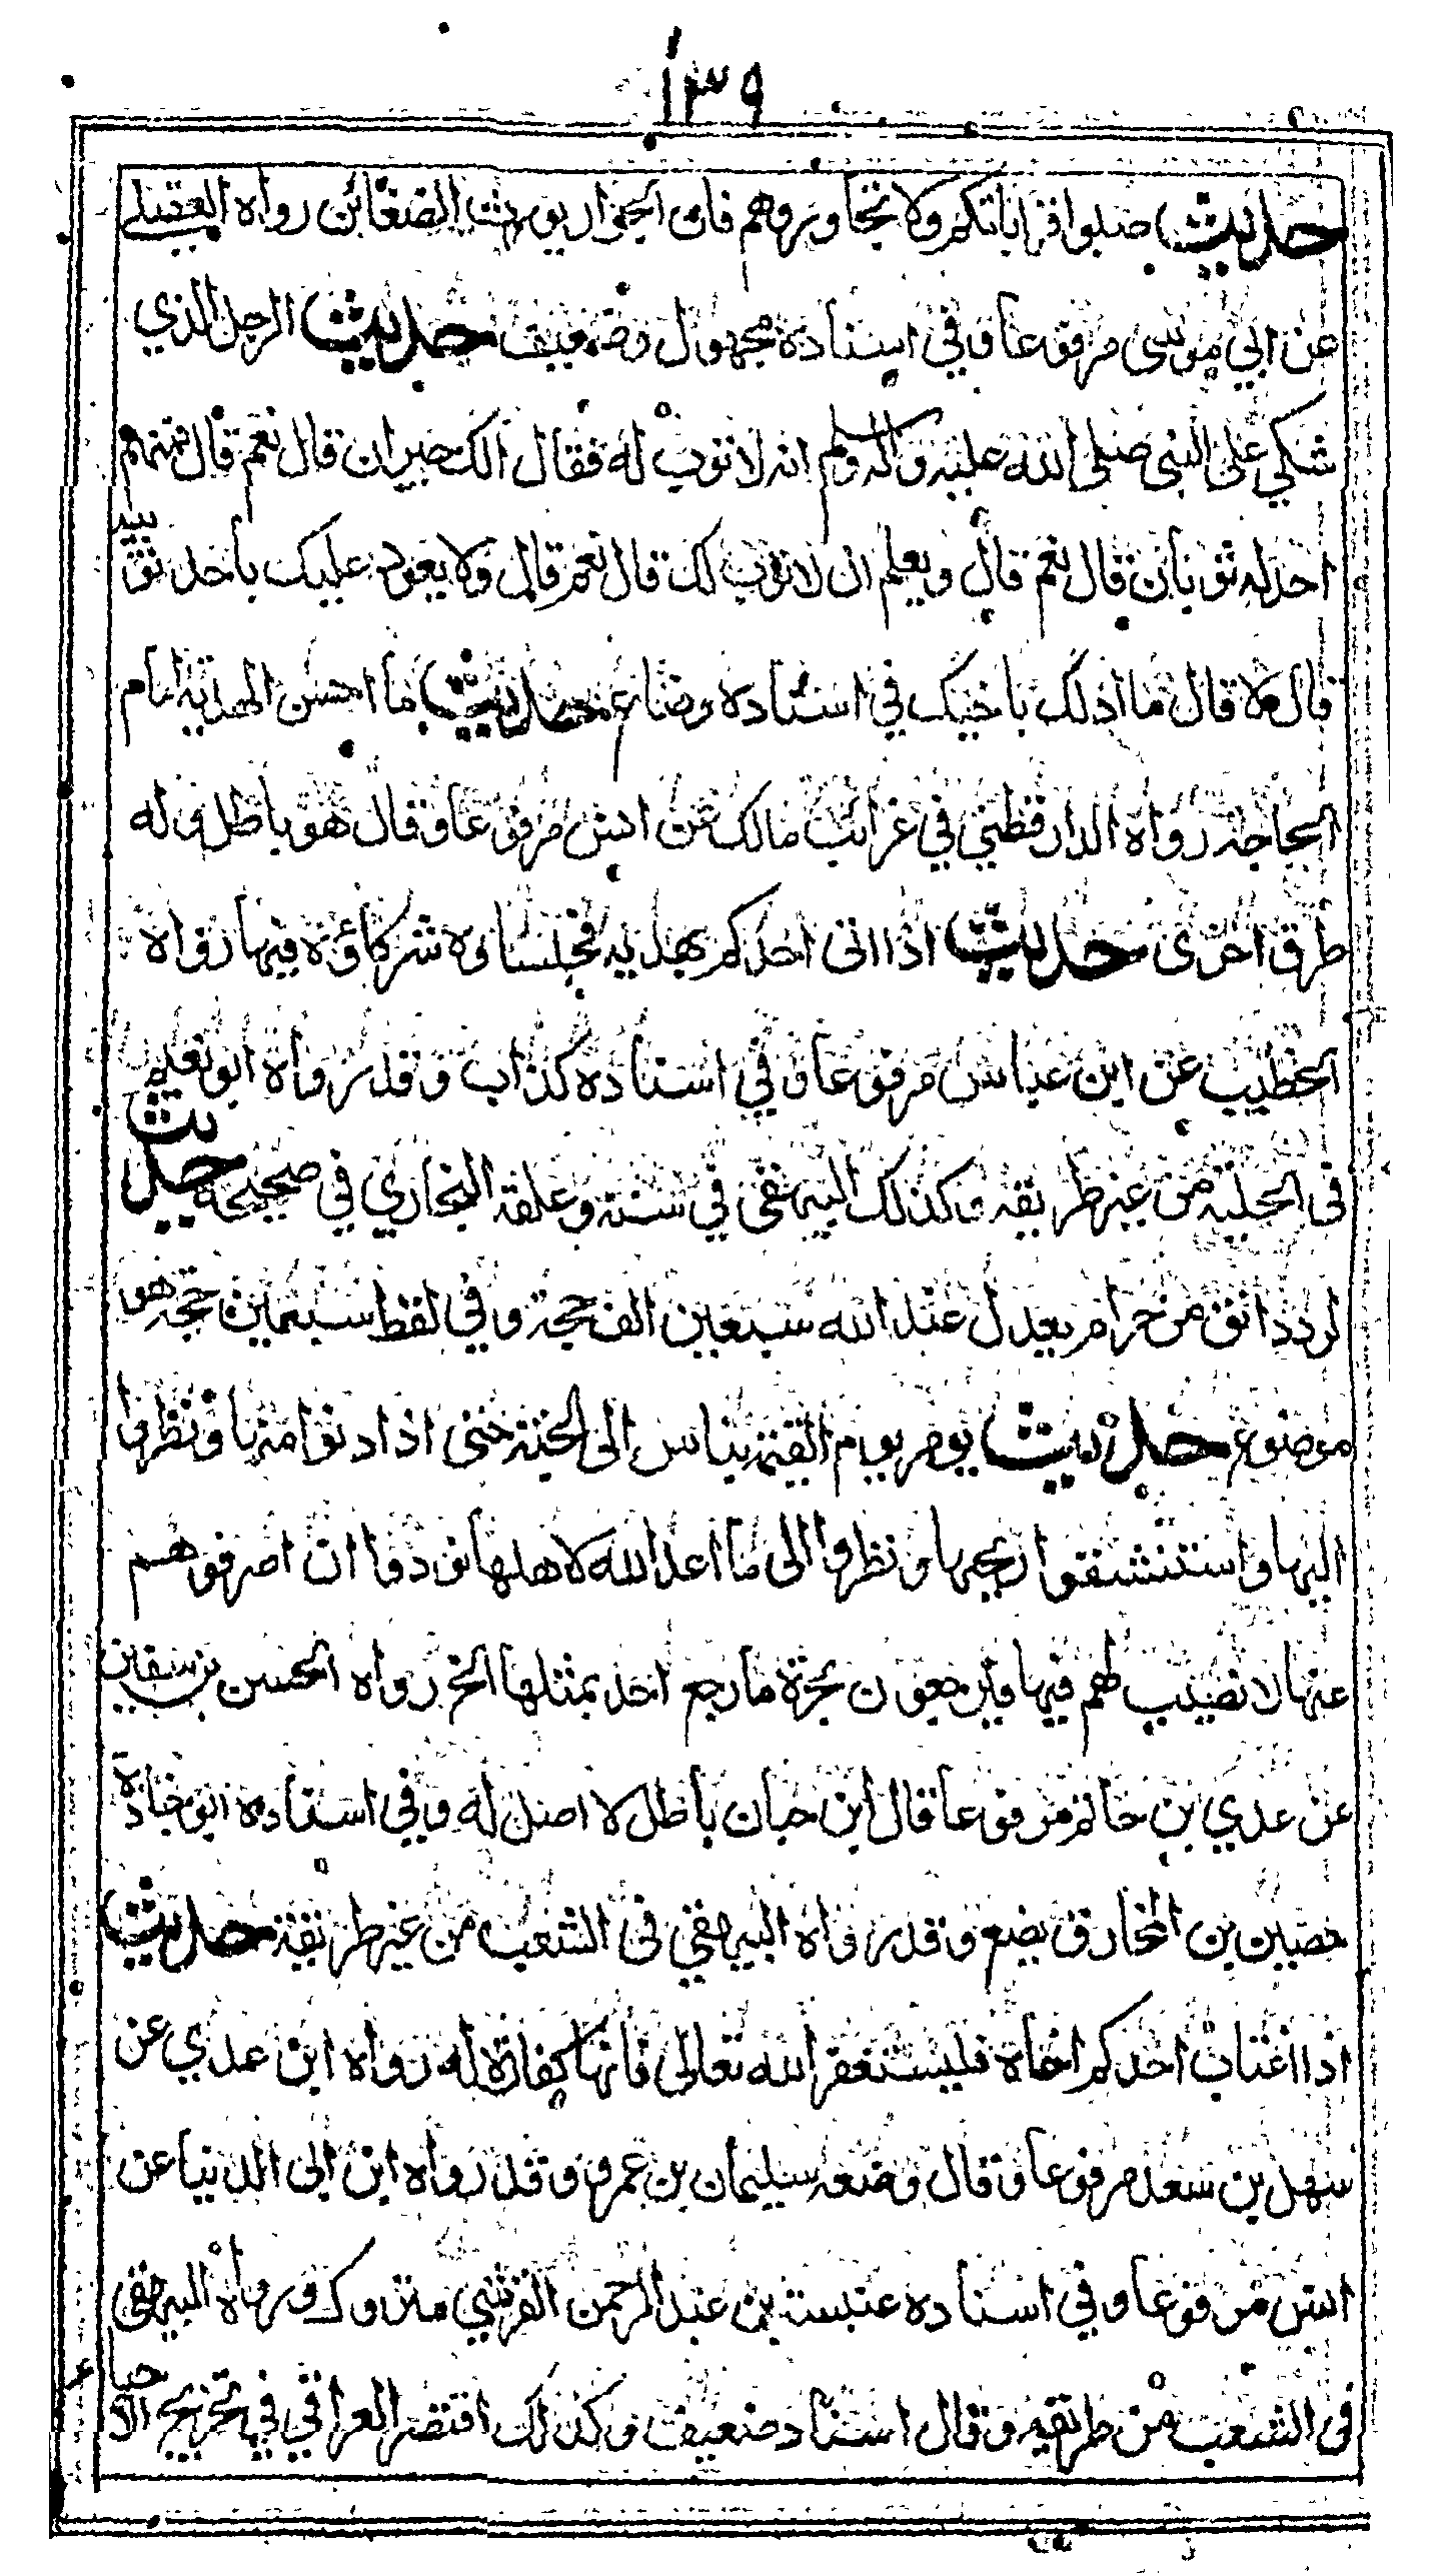 ١٣٩
حديث صلوا قراباتكم ولا تجاوروهم فان الجوار يورث الضغائن رواه العقيلي
عن ابي موسى مرفوعا وفي اسناده مجهول وضعيف حديث الرجل الذي
شكي على النبي صلى الله عليه وآله وسلم انه لا ثوب له فقال الك جيران قال نعم قال فمنهم
احد له ثوبان قال نعم قال ويعلم ان لا ثوب لك قال نعم قال ولا يعود عليك باحد ثوبيه
قال لا قال ما اذلك باخيك في اسناده وضاع حديث ما احسن الهدية امام
الحاجة رواه الدارقطني في غرائب مالك عن انس مرفوعا وقال هو باطل وله
طرق اخرى حديث اذا اتى احدكم بهدية فجلساوه شركاؤه فيها رواه
الخطيب عن ابن عباس مرفوعا وفي اسناده كذاب وقد رواه ابو نعيم
في الحلية من غير طريقه وكذلك البيهقي في سننه وعلقه البخاري في صحيحه حديث
لرد دانق من حرام يعدل عند الله سبعين الف حجة وفي لفظ سبعمائة حجة هو
موضوع حديث يومر يوم القيمة بناس الى الجنة حتى اذا دنوا منها ونظروا
اليها واستنشقوا ريحها ونظروا الى ما اعد الله لاهلها نودوا ان اصرفوهم
عنها لا نصيب لهم فيها فيرجعون بحرة ما رجع احد بمثلها الخ رواه الحسن بن سفين
عن عدي بن حاتم مرفوعا قال ابن حبان باطل لا اصل له وفي اسناده ابو جنادة
حصين بن المخارق يضع وقد رواه البيهقي في الشعب من غير طريقة حديث
اذا اغتاب احدكم اخاه فليستغفر الله تعالى فانها كفارة له رواه ابن عدي عن
سهل بن سعد مرفوعا وقال وضعه سليمان بن عمرو وقد رواه ابن ابي الدنيا عن
انس مرفوعا وفي اسناده عنبسة بن عبد الرحمن القرشي متروك ورواه البيهقي
في الشعب من طريقه وقال اسناد ضعيف وكذلك اقتصر العراقي في تخريج الاحياء